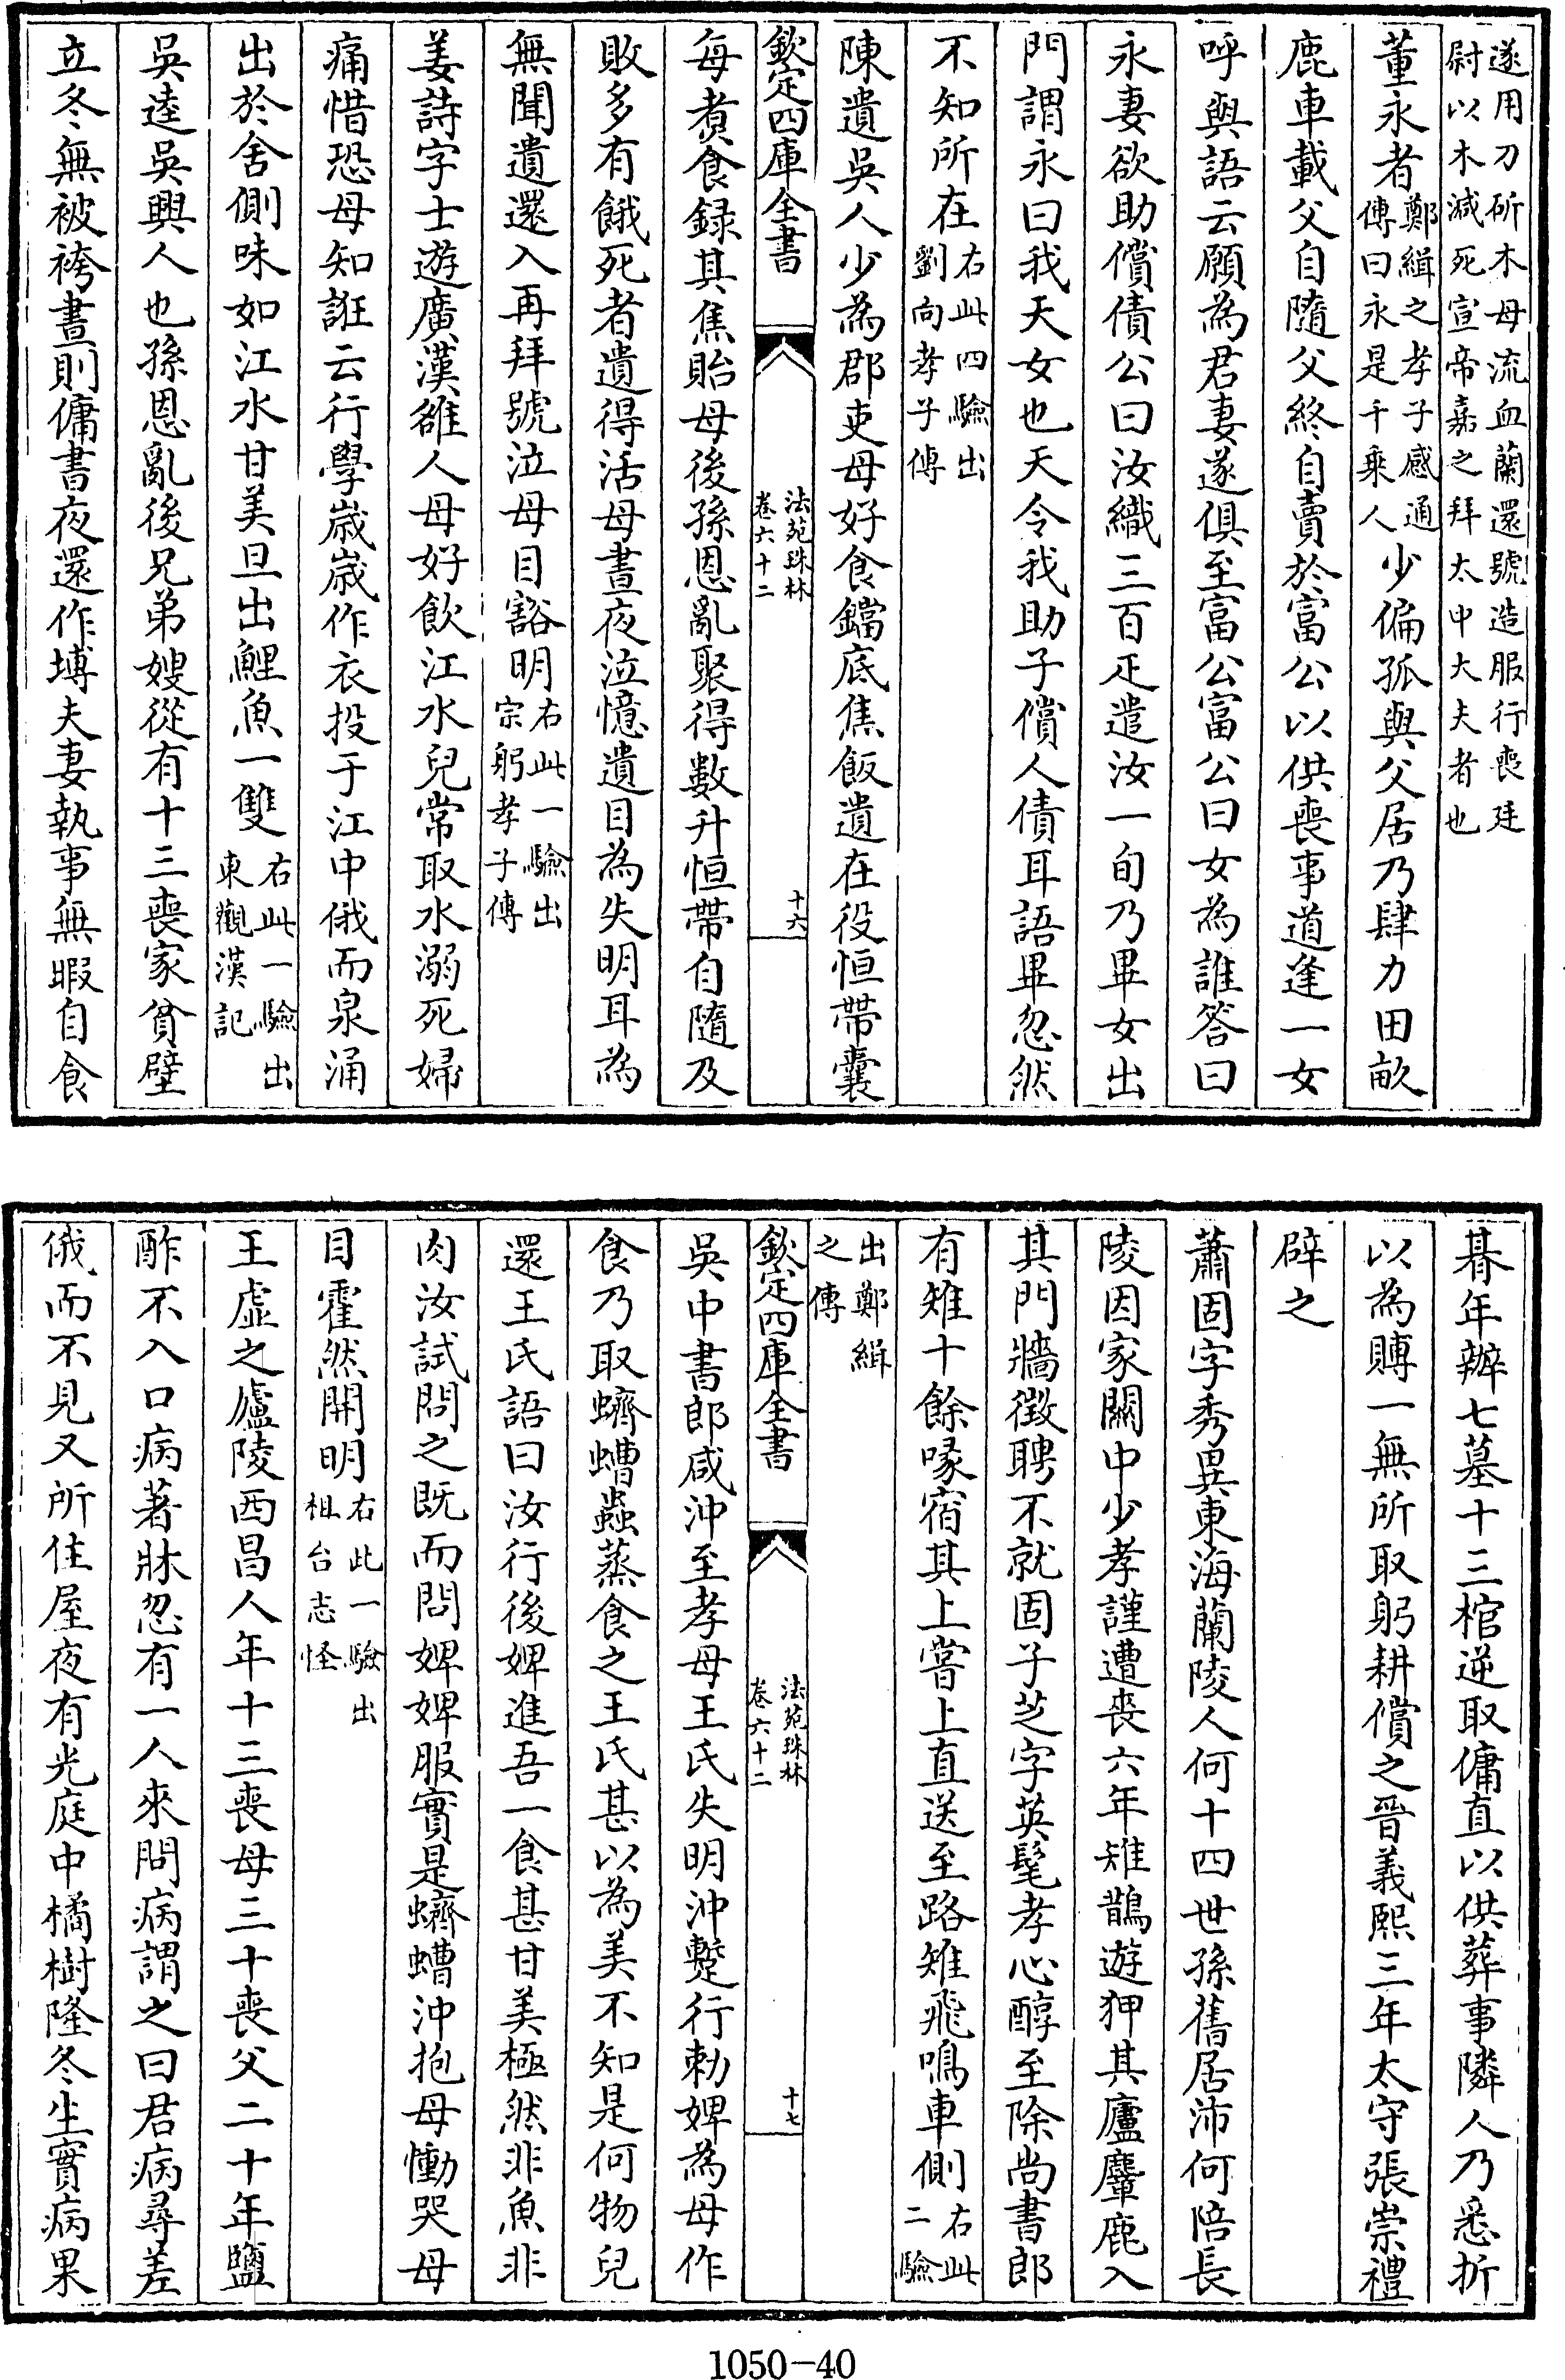 遂用刀斫木母流血蘭還號造服行喪廷
尉以木減死宣帝嘉之拜太中大夫者也
董永者鄭緝之孝子感通傳曰永是千乘人少偏孤與父居乃肆力田畝
鹿車載父自隨父終自賣於富公以供喪事道逢一女
呼與語云願為君妻遂俱至富公富公曰女為誰答曰
永妻欲助償債公曰汝織三百疋遣汝一旬乃畢女出
門謂永曰我天女也天令我助子償人債耳語畢忽然
不知所在右此四驗出劉向孝子傳
陳遺吳人少為郡吏母好食鐺底焦飯遺在役恒帶囊
欽定四庫全書 法苑珠林卷六十二 十六
每煑食録其焦貽母後孫恩亂聚得數升恒帶自隨及
敗多有餓死者遺得活母晝夜泣憶遺目為失明耳為
無聞遺還入再拜號泣母目豁明右此一驗出宗躬孝子傳
姜詩字士遊廣漢雒人母好飲江水兒常取水溺死婦
痛惜恐母知誑云行學嵗嵗作衣投于江中俄而泉涌
出於舍側味如江水甘美旦出鯉魚一雙右此一驗出東觀漢記
吳逵吳興人也孫恩亂後兄弟嫂從有十三喪家貧壁
立冬無被袴晝則傭書夜還作塼夫妻執事無暇自食
朞年辦七墓十三棺逆取傭直以供葬事隣人乃悉折
以為賻一無所取躬耕償之晉義熙三年太守張崇禮
辟之
蕭固字秀異東海蘭陵人何十四世孫舊居沛何陪長
陵因家關中少孝謹遭喪六年雉鵲遊狎其廬麞鹿入
其門牆徵聘不就固子芝字英髦孝心醇至除尚書郎
有雉十餘啄宿其上嘗上直送至路雉飛鳴車側右此二驗
出鄭緝之傳
欽定四庫全書 法苑珠林卷六十二 十七
吳中書郎咸沖至孝母王氏失明沖蹔行勅婢為母作
食乃取蠐螬蟲蒸食之王氏甚以為美不知是何物兒
還王氏語曰汝行後婢進吾一食甚甘美極然非魚非
肉汝試問之既而問婢婢服實是蠐螬沖抱母慟哭母
目霍然開明右此一驗出祖台志怪
王虛之廬陵西昌人年十三喪母三十喪父二十年鹽
酢不入口病著牀忽有一人來問病謂之曰君病尋差
俄而不見又所住屋夜有光庭中橘樹隆冬生實病果
1050-40